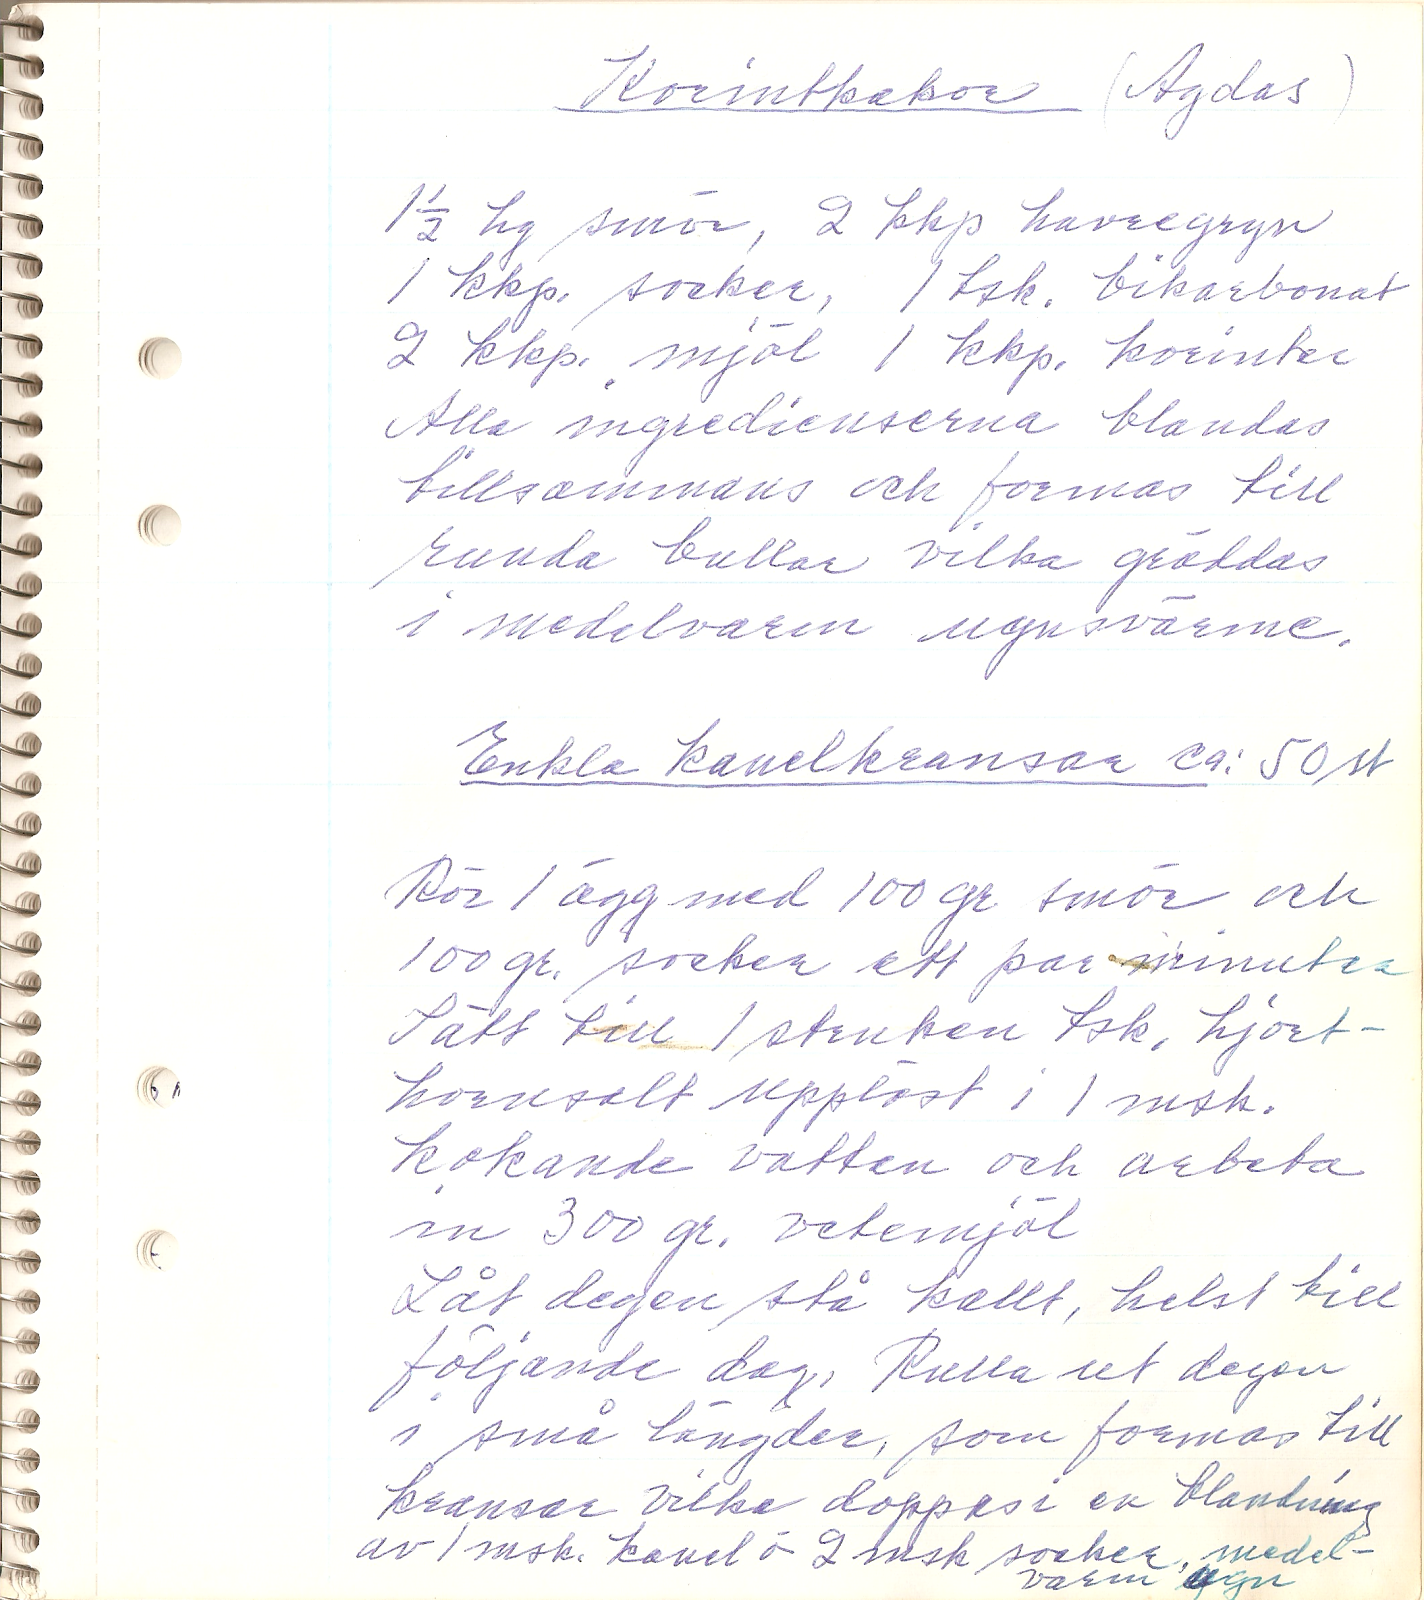 Korintkakor (Agdas)
1½ hg smör, 2 kkp havregryn
1 kkp. socker, 1 tsk. bikarbonat
2 kkp. mjöl 1 kkp. korinter
Alla ingredienserna blandas
tillsammans och formas till
runda bullar vilka gräddas
i medelvarm ugnsvärme.
Enkla kanelkransar ca: 50 st
Rör 1 ägg med 100 gr smör och
100 gr. socker ett par minuter
Sätt till 1 struken tsk. hjort-
hornsalt upplöst i 1 msk.
kokande vatten och arbeta
in 300 gr. vetemjöl
Låt degen stå kallt, helst till
följande dag. Rulla ut degen
i små längder, som formas till
kransar vilka doppas i en blandning
av 1 msk. kanel o 2 msk socker, medel-
varm ugn